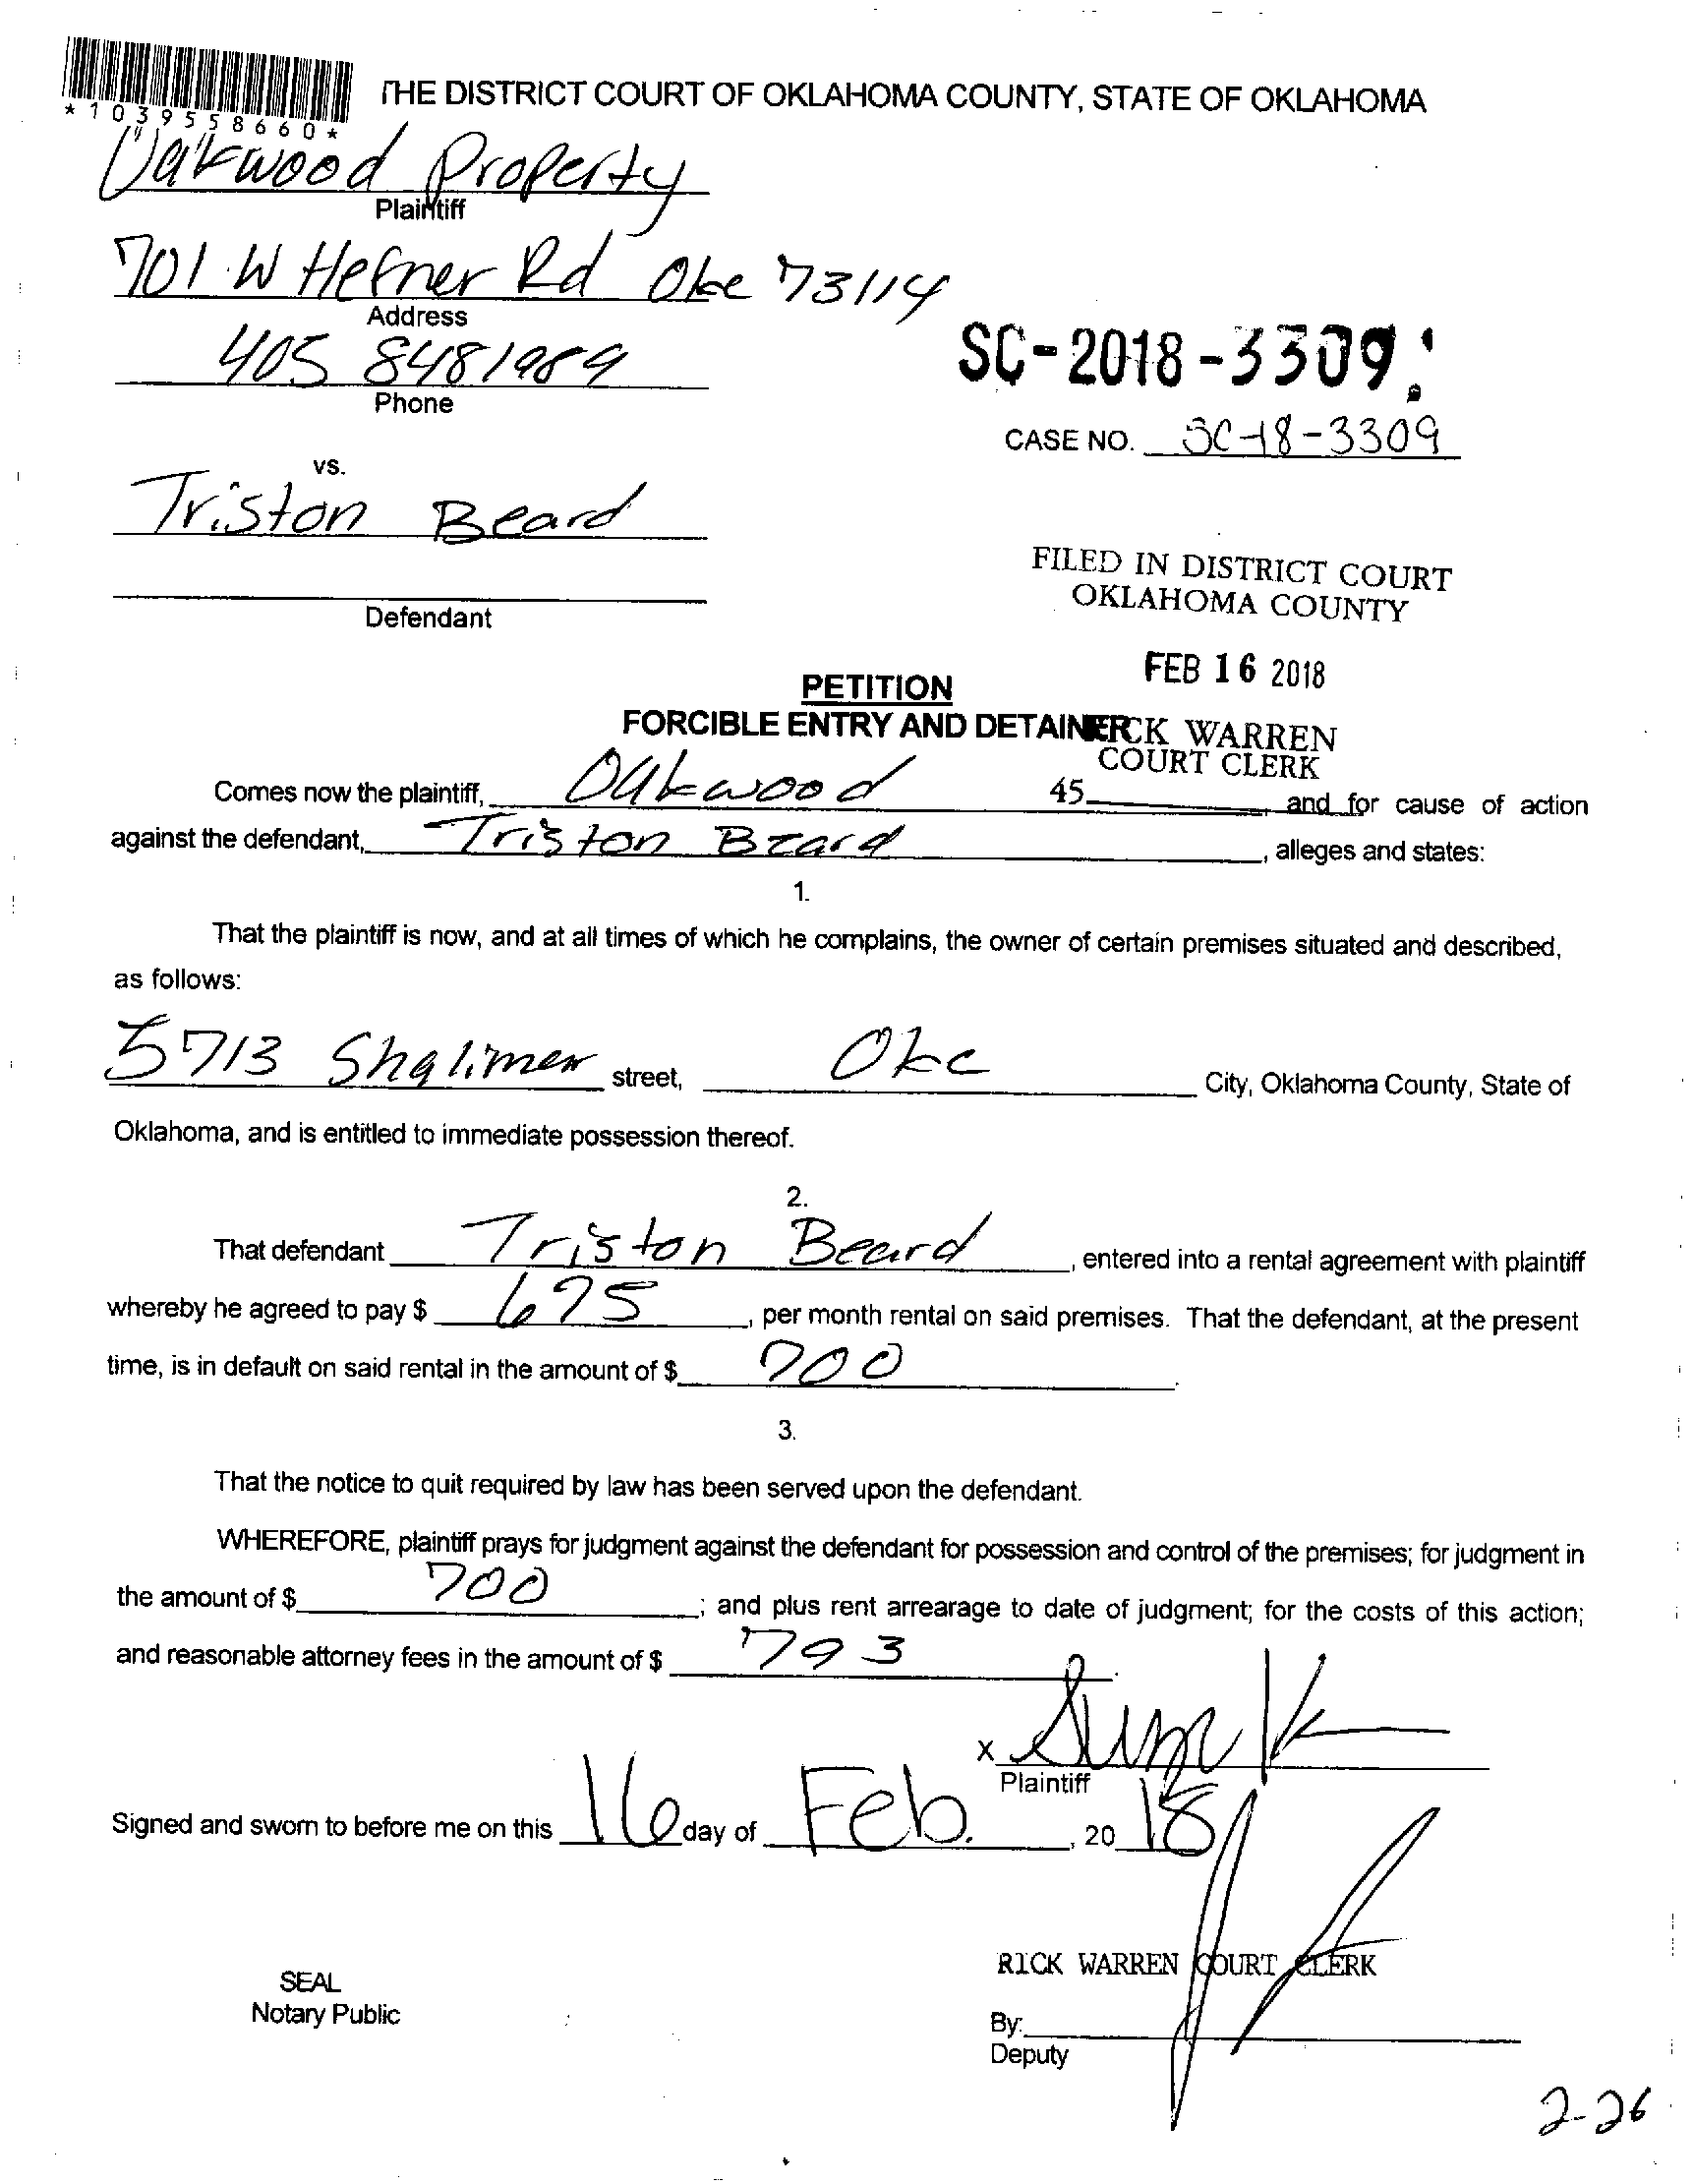 *1039558660*
THE DISTRICT COURT OF OKLAHOMA COUNTY, STATE OF OKLAHOMA
Oakwood Property
Plaintiff
701 W Hefner Rd Okc 73114
Address
405 8481989
Phone
SC-2018-3309
CASE NO. SC-18-3309
vs.
Triston Beard
Defendant
FILED IN DISTRICT COURT
OKLAHOMA COUNTY
FEB 16 2018
PETITION
FORCIBLE ENTRY AND DETAINER
RICK WARREN
COURT CLERK
45
Comes now the plaintiff, Oakwood and for cause of action
against the defendant, Triston Beard, alleges and states:
1.
That the plaintiff is now, and at all times of which he complains, the owner of certain premises situated and described,
as follows:
5713 Shalimer street, Okc City, Oklahoma County, State of
Oklahoma, and is entitled to immediate possession thereof.
2.
That defendant Triston Beard, entered into a rental agreement with plaintiff
whereby he agreed to pay $ 675, per month rental on said premises. That the defendant, at the present
time, is in default on said rental in the amount of $ 700.
3.
That the notice to quit required by law has been served upon the defendant.
WHEREFORE, plaintiff prays for judgment against the defendant for possession and control of the premises; for judgment in
the amount of $ 700; and plus rent arrearage to date of judgment; for the costs of this action;
and reasonable attorney fees in the amount of $ 793
X
Plaintiff
Signed and sworn to before me on this 16 day of Feb., 20 18
RICK WARREN COURT CLERK
SEAL
Notary Public
By:
Deputy
2-26